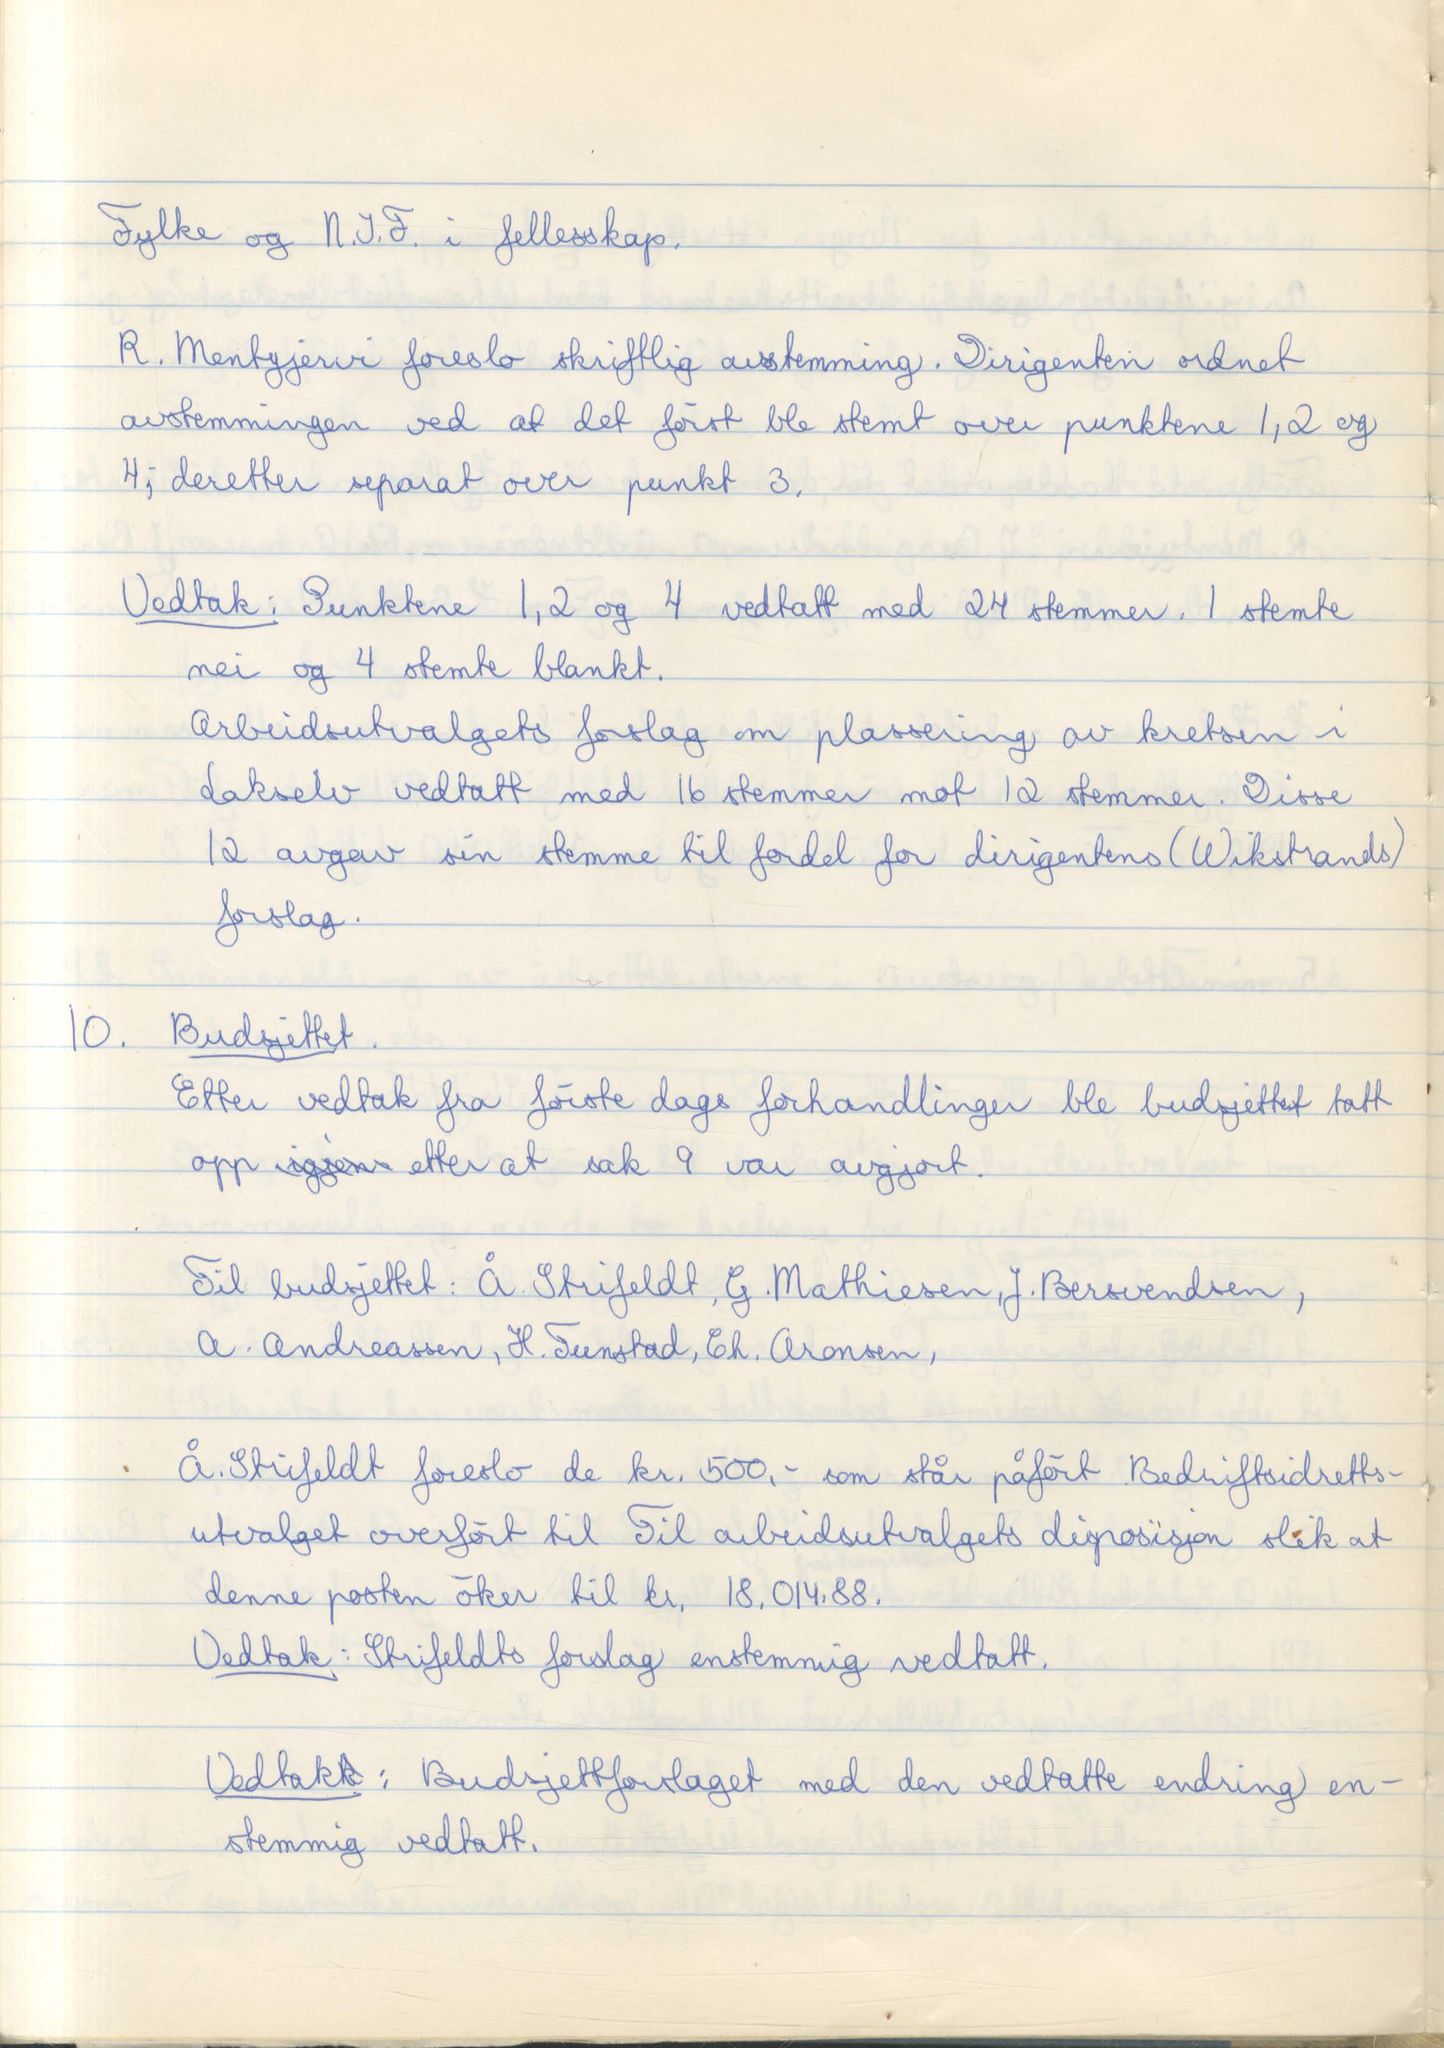 Fylke og N.I.F. i fellesskap.
R. Mentyjervi foreslo skriftlig avstemming. Dirigenten ordnet
avstemmingen ved at det först ble stemt over punktene 1, 2 og
4; deretter separat over punkt 3.
Vedtak: Punktene 1, 2 og 4 vedtatt med 24 stemmer. 1 stemte
nei og 4 stemte blankt.
Arbeidsutvalgets forslag om plassering av kretsen i
Lakselv vedtatt med 16 stemmer mot 12 stemmer. Disse
12 avgav sin stemme til fordel for dirigentens (Wikstrands)
forslag.
10. Budsjettet.
Etter vedtak fra förste dags forhandlinger ble budsjettet tatt
opp igjen etter at sak 9 var avgjort.
Til budsjettet: Å. Strifeldt, G. Mathiesen, J. Bersvendsen,
A. Andreassen, H. Tunstad, Ch. Aronsen,
Å. Strifeldt foreslo de kr. 500,- som står påfört Bedriftsidretts-
utvalget overfört til Til arbeidsutvalgets disposisjon slik at
denne posten öker til kr. 18.014.88.
Vedtak: Strifeldts forslag enstemmig vedtatt.
Vedtak: Budsjettforslaget med den vedtatte endring en-
stemmig vedtatt.